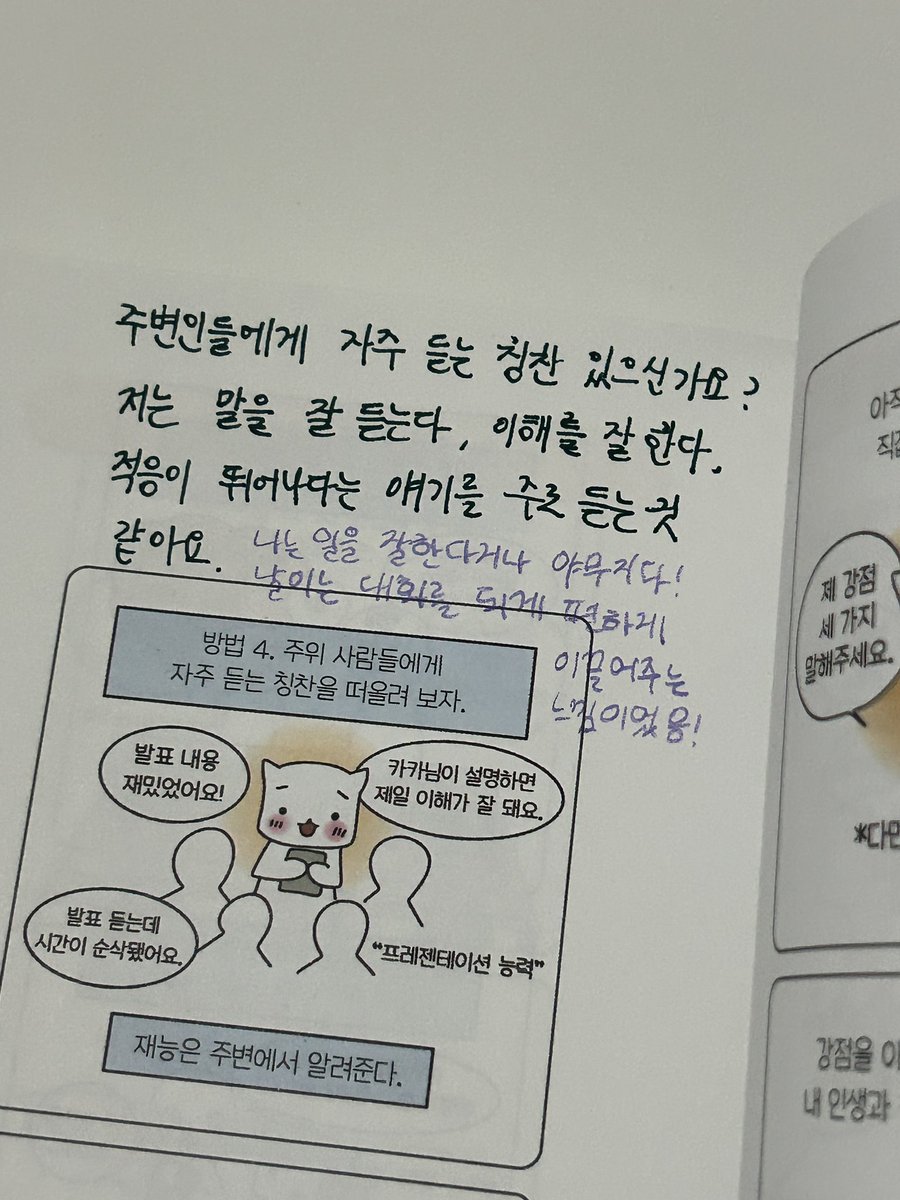 주변인들에게 자주 듣는 칭찬 있으신가요?
저는 말을 잘 듣는다, 이해를 잘 한다,
적응이 뛰어나다는 얘기를 주로 듣는 것
같아요.
나는 일을 잘한다거나 야무지다!
날이는 대화를 되게 편하게
이끌어주는
느낌이었음!
방법 4. 주위 사람들에게
자주 듣는 칭찬을 떠올려 보자.
발표 내용
재밌었어요!
카카님이 설명하면
제일 이해가 잘 돼요.
발표 듣는데
시간이 순삭됐어요.
"프레젠테이션 능력"
재능은 주변에서 알려준다.
아직
제 강점
세 가지
말해주세요.
*다면
강점을 이
내 인생과